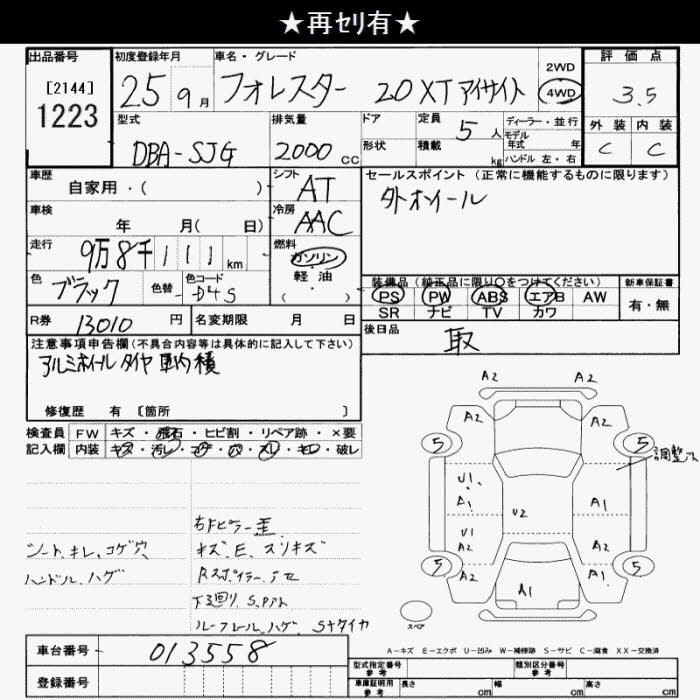 ★再ｾﾘ有★
出品番号 初度登録年月 車名・グレード 評価点
[2144]
1223
25 9月 フォレスター 20XT アイサイト 2WD 4WD 3.5
型式 排気量 ドア 定員 5人 ディーラー・並行 外装 内装
モデル年式 年
DBA-SJG 2000CC 形状 積載 kg ハンドル 左・右 C C
車歴 シフト セールスポイント(正常に機能するものに限ります)
自家用・( ) AT 外ホイール
車検 冷房
年 月( 日) AAC
走行 燃料
9万8千111km ガソリン
色 色替 色コード 軽・油 装備品(純正品に限り○をつけてください) 新車保証書
ブラック D4S ( ) PS PW ABS エアB AW 有・無
SR ナビ TV カワ
R券 13010円 名変期限 月 日 後日品
取
注意事項申告欄(不具合内容等は具体的に記入して下さい)
アルミホイール タイヤ 車内積
修復歴 有 [箇所 ]
A2 A2
検査員 FW キズ・飛石・ヒビ割・リペア跡・×要
記入欄 内装 キズ・汚レ・コゲ・穴・スレ・キレ・破レ
A2 A2
5 5
調整穴
U1 A1 U2 A1
U1 A2 A2
5 5
A2 A1 A1
右Fピラー歪
シート、キレ、コゲ穴 キズ、E、スリキズ
ハンドル、ハゲ
下回り、S
ルーフレール、ハゲ、Sキタイヤ
スペア
A-キズ E-エクボ U-凹み W-補修跡 S-サビ C-腐食 XX-交換済
車台番号 013558
型式指定番号 参考 類別区分番号 参考
登録番号 車庫証明用 参考 長さ cm 幅 cm 高さ cm